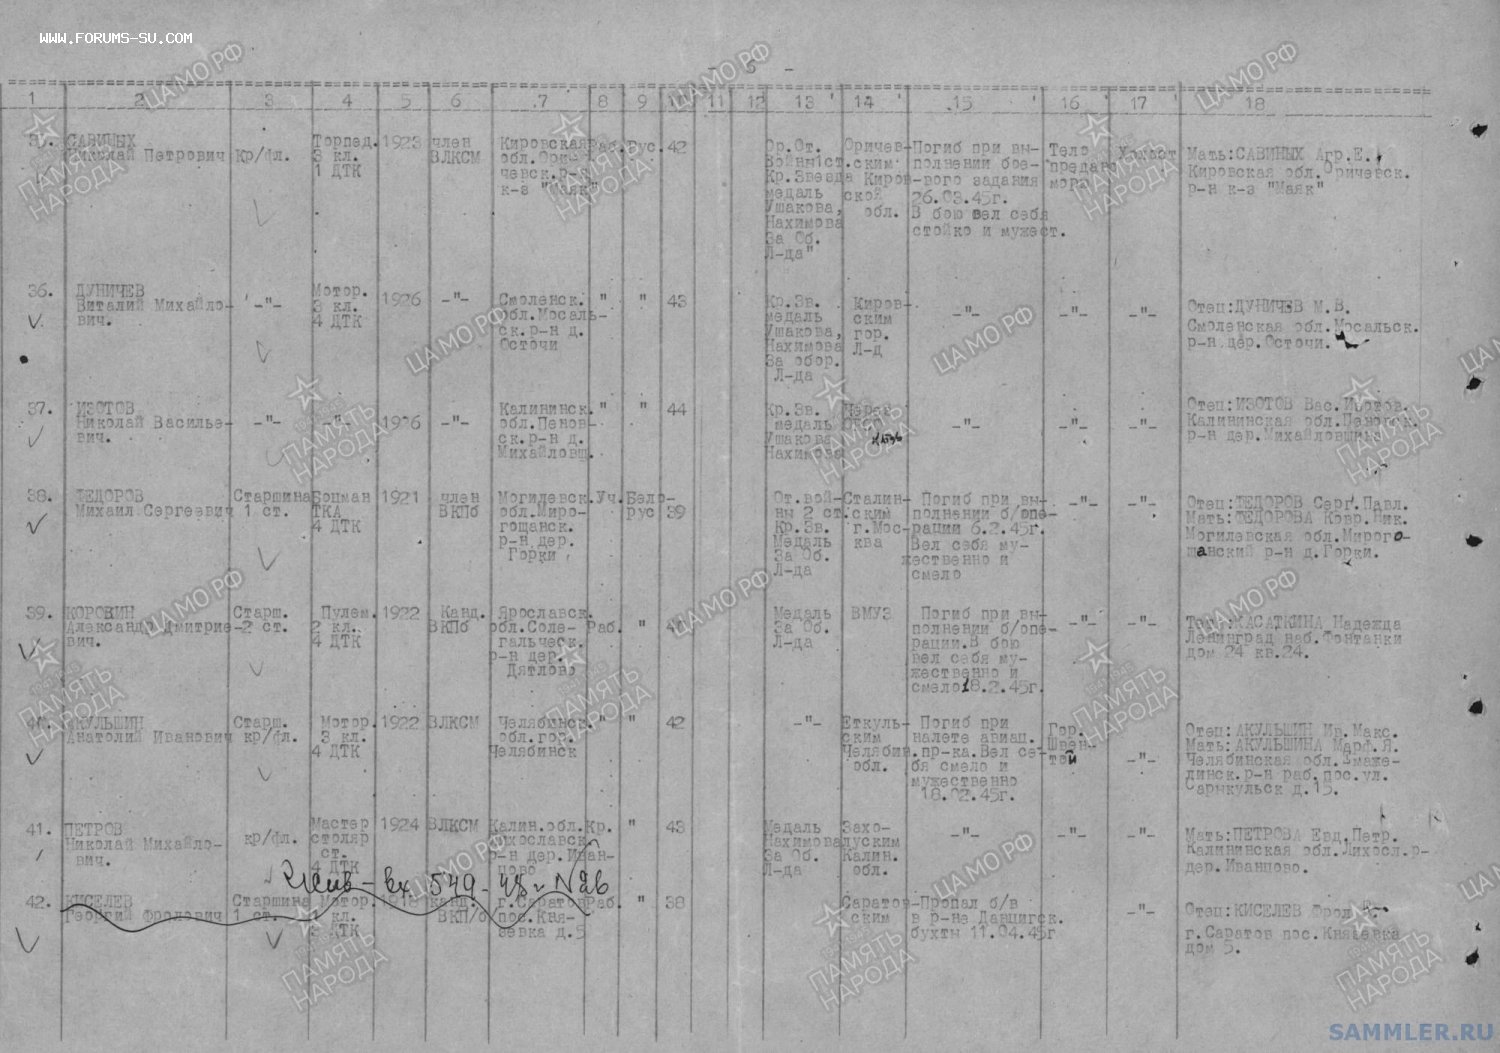 WWW.FORUMS-SU.COM
- 6 -
1 2 3 4 5 6 7 8 9 10 11 12 13 14 15 16 17 18
САВИНЫХ Николай Петрович
Кр/фл.
Торпед. 3 кл. 1 ДТК
1923
член ВЛКСМ
Кировская обл. Оричевск. р-н к-з "Маяк"
Раб.
Рус.
42
Ор.От. Войны 1 ст. Кр.Звезда медаль Ушакова, Нахимова За Об. Л-да"
Оричевским Кировской обл.
Погиб при выполнении боевого задания 26.03.45г. В бою вел себя стойко и мужест.
Тело предано морю
Мать:САВИНЫХ Агр.Е. Кировская обл.Оричевск. р-н к-з "Маяк"
36.
ДУНИЧЕВ Виталий Михайлович.
-"-
Мотор. 3 кл. 4 ДТК
1926
-"-
Смоленск. обл.Мосальск.р-н д. Осточи
"
"
43
Кр.Зв. медаль Ушакова, Нахимова За обор. Л-да
Кировским гор. Л-д
-"-
-"-
-"-
Отец:ДУНИЧЕВ М.В. Смоленская обл.Мосальск. р-н.дер.Осточи.
37.
ИЗОТОВ Николай Васильевич.
-"-
-"-
1926
-"-
Калининск. обл.Пеновск.р-н д. Михайловщ.
"
"
44
Кр.Зв. медаль Ушакова Нахимова
-"-
-"-
-"-
Отец:ИЗОТОВ Вас.Изотов. Калининская обл.Пеновск. р-н дер.Михайловщина
38.
ФЕДОРОВ Михаил Сергеевич
Старшина 1 ст.
Боцман ТКА 4 ДТК
1921
член ВКПб
Могилевск. обл.Мирогощанск. р-н дер. Горки
Уч.
Белорус
39
От.войны 2 ст. Кр.Зв. Медаль За Об. Л-да
Сталинским г.Москва
Погиб при выполнении б/операции 6.2.45г. Вел себя мужественно и смело
-"-
-"-
Отец:ФЕДОРОВ Серг.Павл. Мать:ФЕДОРОВА Ник. Могилевская обл.Мирогощанский р-н д.Горки.
39.
КОРОВИН Александр Дмитриевич.
Старш. 2 ст.
Пулем. 2 кл. 4 ДТК
1922
Канд. ВКПб
Ярославск. обл.Солегальческ. р-н дер. Дятлово
Раб.
"
Медаль За Об. Л-да
ВМУЗ
Погиб при выполнении б/операции.В бою вел себя мужественно и смело 18.2.45г.
-"-
-"-
КАСАТКИНА Надежда Ленинград наб.Фонтанки дом 24 кв.24.
40.
АКУЛЬШИН Анатолий Иванович
Старш. кр/фл.
Мотор. 3 кл. 4 ДТК
1922
ВЛКСМ
Челябинск. обл.гор. Челябинск
"
"
42
-"-
Еткульским Челябин. обл.
Погиб при налете авиац. пр-ка.Вел себя смело и мужественно 18.02.45г.
Гор. Швентой
-"-
Отец:АКУЛЬШИН Ив.Макс. Мать:АКУЛЬШИНА Марф.Я. Челябинская обл. р-н раб.пос.ул. Сарыкульск д.15.
41.
ПЕТРОВ Николай Михайлович.
кр/фл.
Мастер столяр ст. 4 ДТК
1924
ВЛКСМ
Калин.обл. Лихославск. р-н дер.Иванцово
Кр.
"
43
Медаль Нахимова За Об. Л-да
Калин. обл.
-"-
-"-
-"-
Мать:ПЕТРОВА Евд.Петр. Калининская обл.Лихосл.р- дер.Иванцово.
Жив - вх. 549
42.
КИСЕЛЕВ Георгий Фролович
Старшина 1 ст.
Мотор. 1 кл. 3 ДТК
1918
канд. ВКП/б
г.Саратов пос.Князевка д.5
Раб.
"
38
Саратовским
Пропал б/в в р-не Данцигск. бухты 11.04.45г
-"-
Отец:КИСЕЛЕВ Фрол г.Саратов пос.Князевка дом 5.
ЦАМО РФ
ПАМЯТЬ НАРОДА
SAMMLER.RU